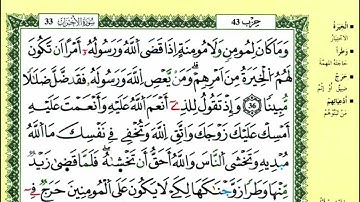 33 سُورَةُ الأَحْزَابِ
حزب 43
وَمَا كَانَ لِمُومِنٖ وَلَا مُومِنَةٍ اِذَا قَضَى اَللَّهُ وَرَسُولُهُۥٓ أَمْراً اَن تَكُونَ
لَهُمُ اُلْخِيَرَةُ مِنَ اَمْرِهِمْ وَمَنْ يَّعْصِ اِللَّهَ وَرَسُولَهُۥ فَقَد ضَّلَّ ضَلَٰلاٗ
مُّبِيناٗ 36 وَإِذْ تَقُولُ لِلذِےٓ أَنْعَمَ اَللَّهُ عَلَيْهِ وَأَنْعَمْتَ عَلَيْهِ
أَمْسِكْ عَلَيْكَ زَوْجَكَ وَاتَّقِ اِللَّهَ وَتُخْفِے فِے نَفْسِكَ مَا اَللَّهُ
مُبْدِيهِ وَتَخْشَى اَلنَّاسَ وَاللَّهُ أَحَقُّ أَن تَخْشَيٰهُ فَلَمَّا قَضَىٰ زَيْدٞ
مِّنْهَا وَطَراٗ زَوَّجْنَٰكَهَا لِكَےْ لَا يَكُونَ عَلَى اَلْمُومِنِينَ حَرَجٞ فِےٓ
الْخِيَرَةُ
الاختيار
وَطَراً
حاجته المهمة
حَرَجٌ
ضيق أو إثم
أَدْعِيَائِهِمْ